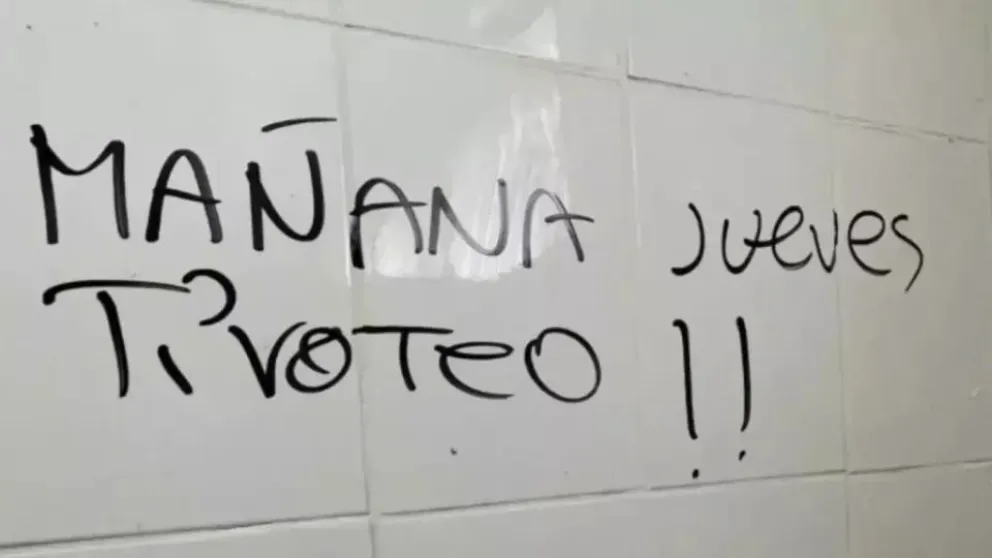 MAÑANA jueves
TiVOTEO !!